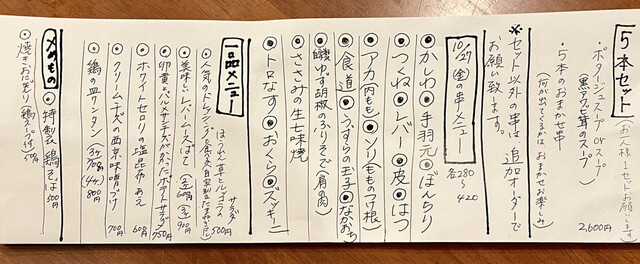 5本セット(お一人様1セットお願いします)
・ポタージュスープ or スープ
(黒アワビ茸のスープ)
・5本のおまかせ串
(何が出てくるかは おまかせお楽しみ)
2,600円
※セット以外の串は、追加オーダーで
お願い致します。
10/27(金)の串メニュー 各280〜420
◉かしわ◉手羽元◉ぼんちり
◉つくね◉レバー◉皮◉はつ
◉アカ(内もも)◉ソリ(ももつけ根)
◉食道◉うずらの玉子◉なかおち
◉蠍ゆず胡椒のふりそで(肩の肉)
◉ささみの生七味焼
◉トロなす◉おくら◉ズッキーニ
一品メニュー
ほうれん草とゴルゴンゾーラ サラダ
・人気のドレッシングで食べる 500円
・美味しいレバームースパテ (小)600円 (大)910円
・卵黄とパルメザンチーズがかかったポテトサラダ 750円
・ホワイトセロリの塩昆布あえ 600円
・クリームチーズの西京味噌づけ 700円
・鶏の皿ワンタン (3ヶ)700円 (4ヶ)800
〆のもの
◦特製 鶏そば 500円
◦焼きおにぎり(鶏スープ付)